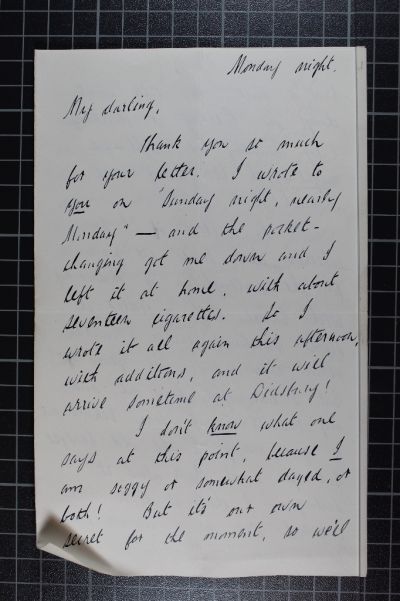 Monday night.
My darling,
Thank you so much
for your letter. I wrote to
you on "Sunday night, nearly
Monday" — and the pocket-
changing got me down and I
left it at home, with about
seventeen cigarettes. So I
wrote it all again this afternoon,
with additions, and it will
arrive sometime at Didsbury!
I don't know what one
says at this point, because I
am soggy or somewhat dazed, or
both! But it's our own
secret for the moment, so we'll